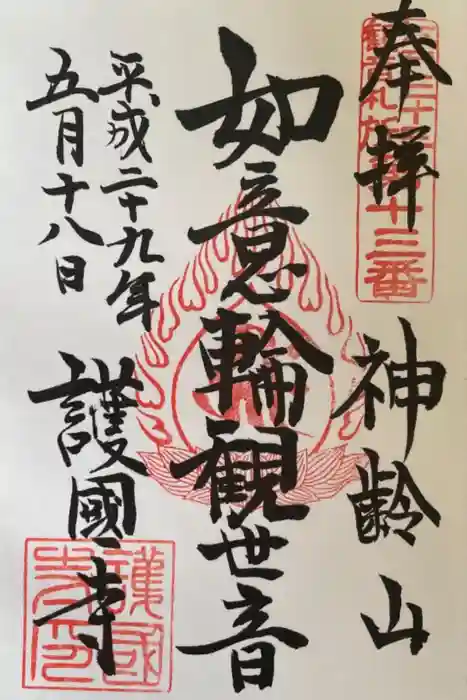 奉拝
神齢山
如意輪観世音
平成二十九年
五月十八日
護國寺
十三番
護國寺印